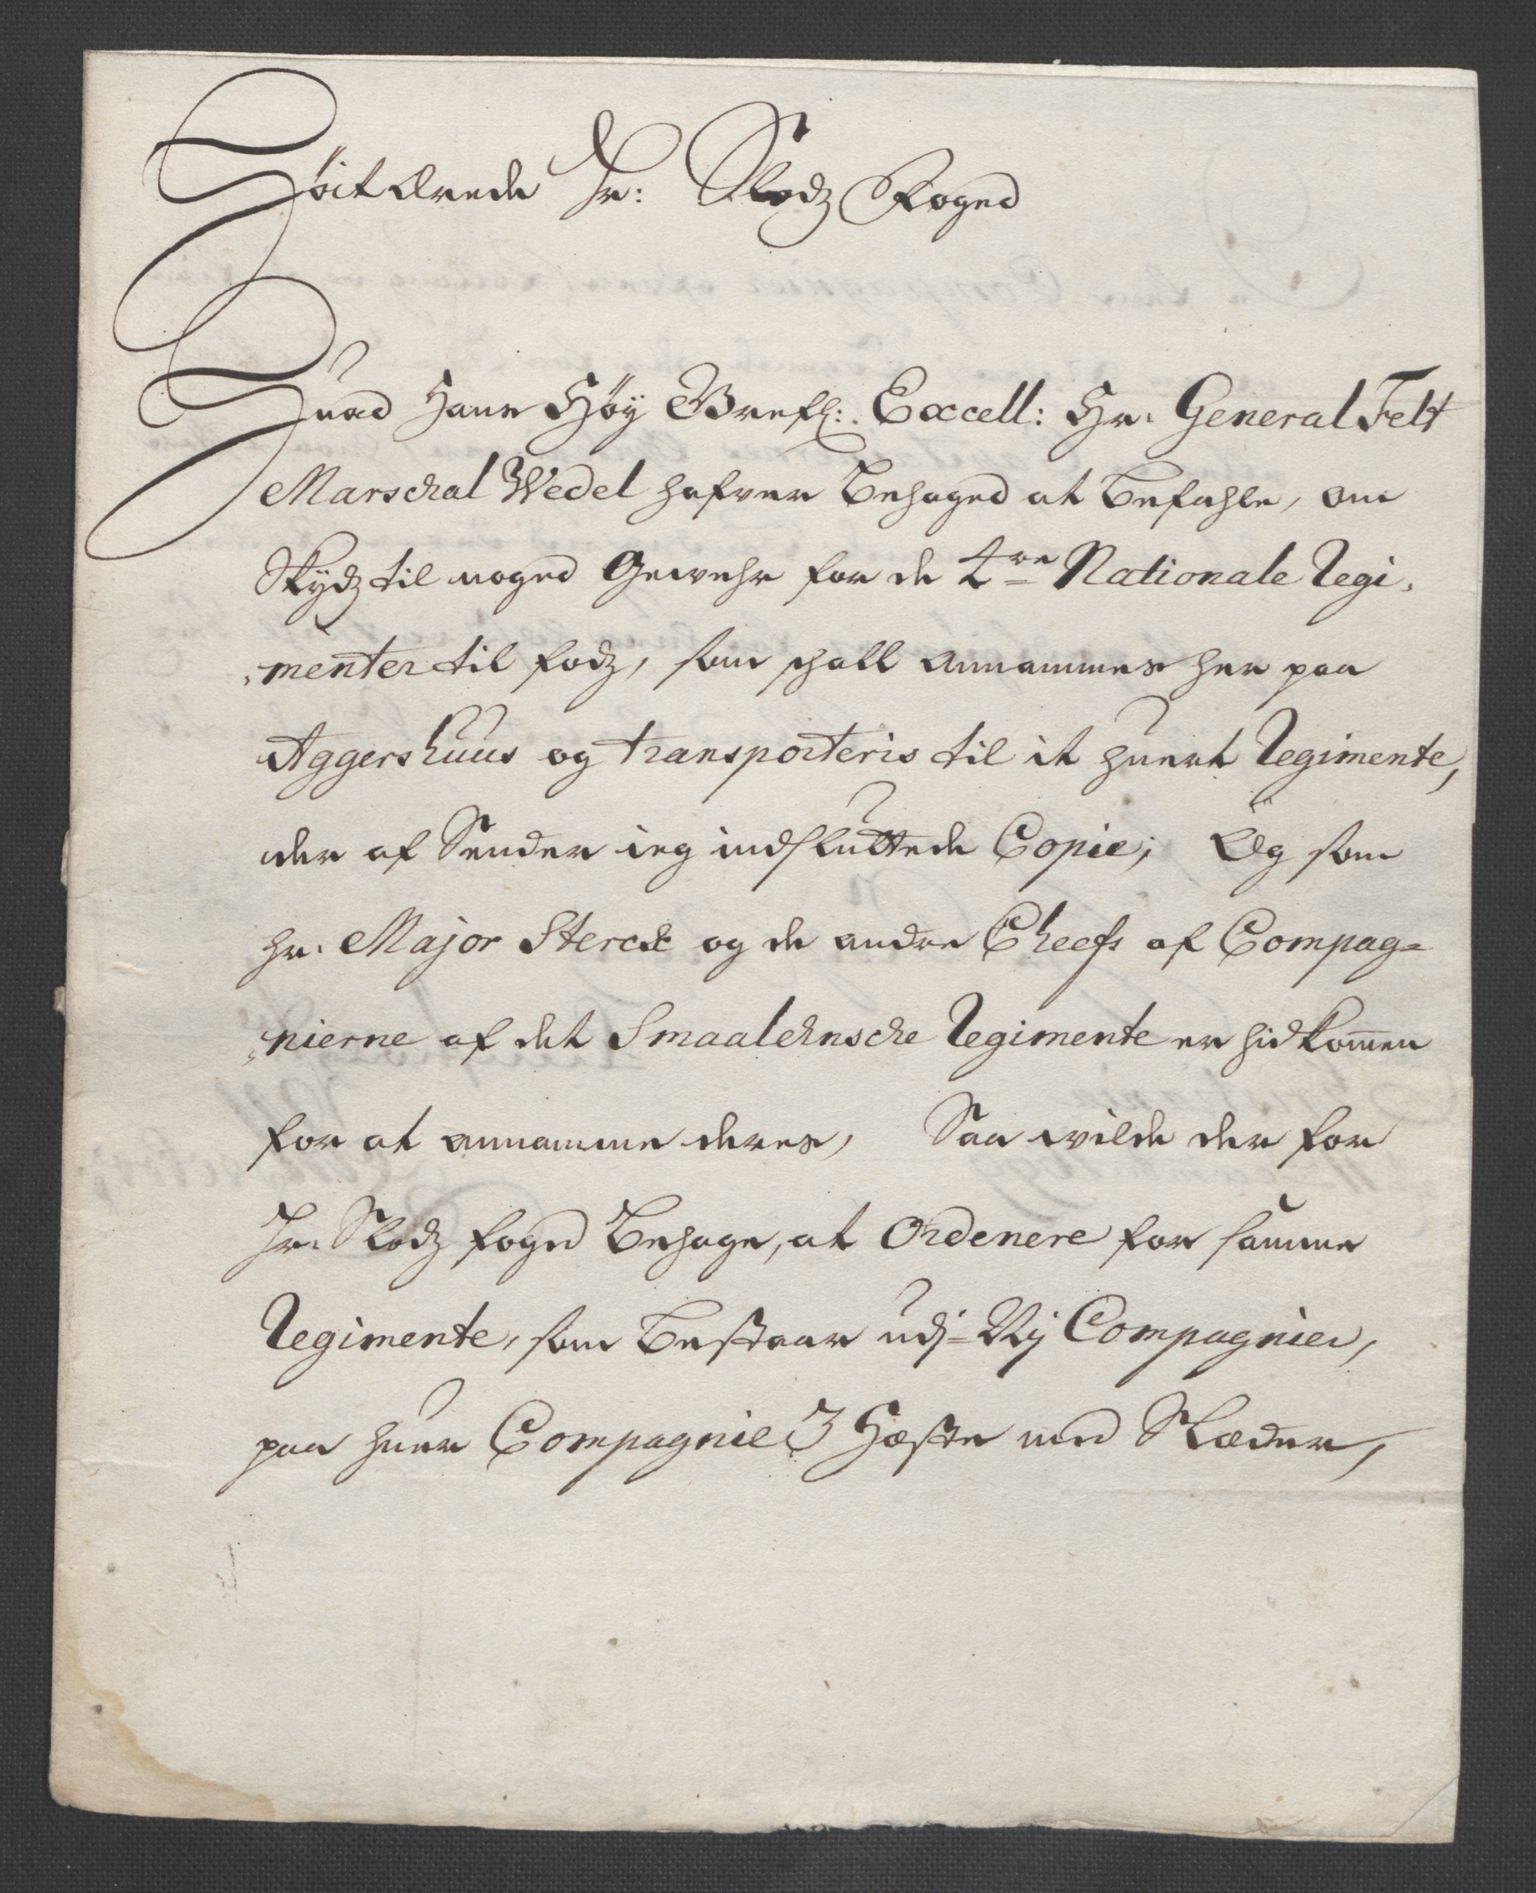 Høit Ærede Hr: Slodz Foged
Huad Hans Høy Grefl: Excell: Hr. General Felt
Marschal Wedel hafver Behaged at Befahle, om
Skydz til noged Gewehr for de 4re Nationale Regi-
menter til fodz, som schall annammes her paa
Aggershuus og transporteris til it huert Regimente,
der af Sender ieg indsluttede Copie; Og som
hr. Major Sterck og de andre Cheefs af Compag=
nierne af det Smaalehnsche Regimente er hidkommen
for at annamme deres, Saa wilde der for
Hr. Slodz foged Behage, at Ordenere for samme
Regimente, som Bestaar udj Compagnier,
paa huer Compagnie 3 Hæste med Slæder,